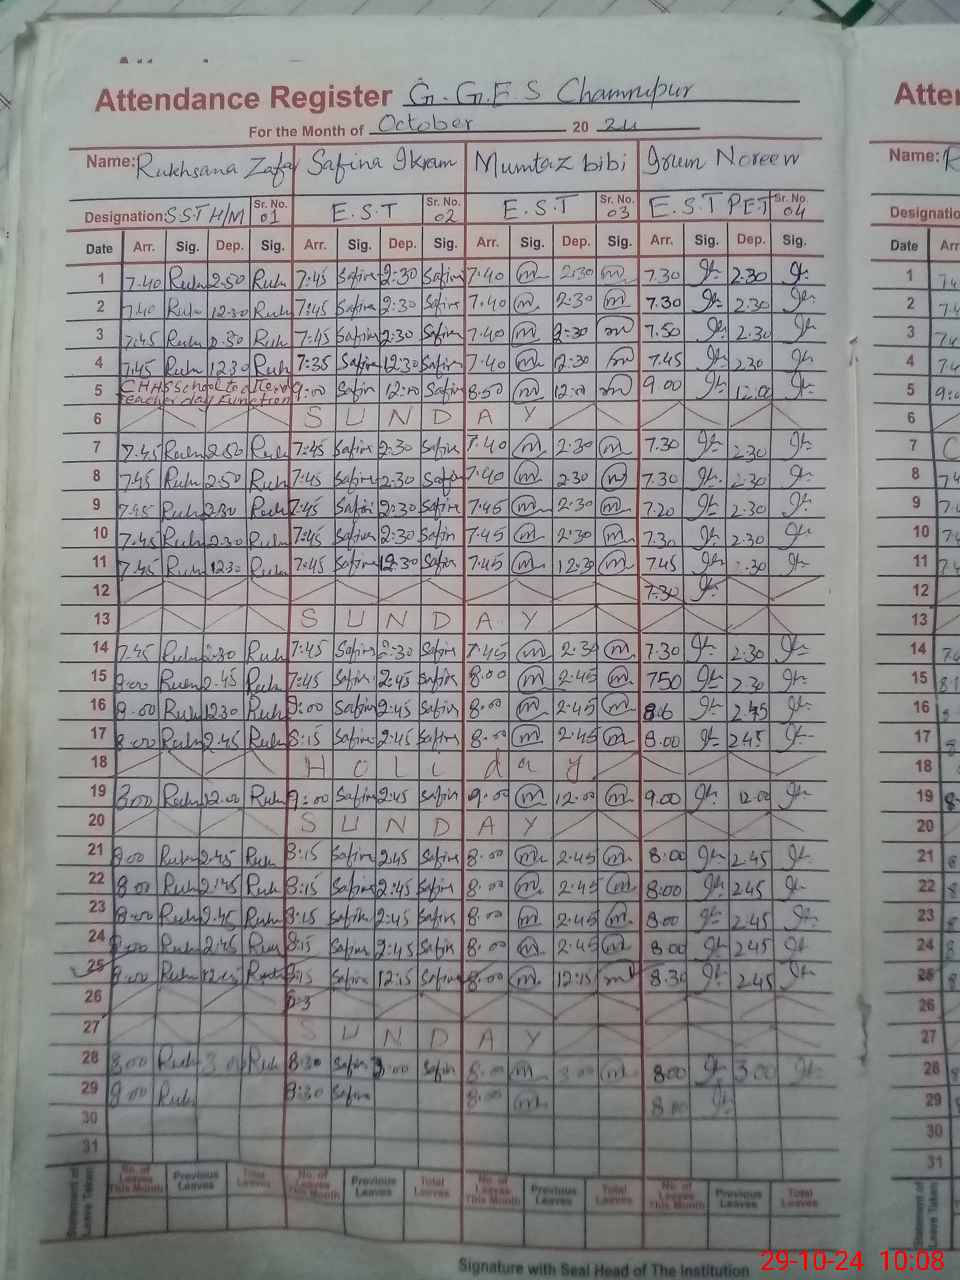 Attendance Register G.G.E.S Chamrupur
For the Month of October 20 24
Name: Rukhsana Zafar Safina Ikram Mumtaz bibi Irum Noreen
Designation: SST H/M Sr. No. 01 E.S.T Sr. No. 02 E.S.T Sr. No. 03 E.S.T PET Sr. No. 04
Date Arr. Sig. Dep. Sig. Arr. Sig. Dep. Sig. Arr. Sig. Dep. Sig. Arr. Sig. Dep. Sig.
1 7.40 Ruh 2.50 Ruh 7:45 Safina 2:30 Safina 7.40 m 2.30 m 7.30 2.30
2 7.40 Ruh 12.30 Ruh 7:45 Safina 2:30 Safina 7.40 m 2.30 m 7.30 2.30
3 7.45 Ruh Ruh 7:45 Safina 2:30 Safina 7.40 m 2:30 m 7.50 2.30
4 7.45 Ruh 12.30 Ruh 7:35 Safina 12:30 Safina 7.40 m 12:30 m 7.45 2.30
5 CHHS school to attend teacher day function 9:00 Safin 12:00 Safin 8.50 m 12:00 m 9.00 12.00
6 S U N D A Y
7 7.45 Ruh 2.50 Ruh 7:45 Safina 2:30 Safina 7.40 m 2.30 m 7.30 2.30
8 7.45 Ruh 2.50 Ruh 7:45 Safina 2:30 Safina 7.40 m 2.30 m 7.30 2.30
9 7.45 Ruh 2.30 Ruh 7:45 Safina 2:30 Safina 7.45 m 2.30 m 7.20 2.30
10 7.45 Ruh 2.30 Ruh 7:45 Safina 2:30 Safin 7.45 m 2.30 m 7.30 2.30
11 7.45 Ruh 12.30 Ruh 7:45 Safina 12:30 Safin 7.45 m 12.30 m 7.45 .30
12 7.30
13 S U N D A Y
14 7.45 Ruh 2.30 Ruh 7:45 Safina 2:30 Safina 7.45 m 2.30 m 7.30 2.30
15 8.00 Ruh 2.45 Ruh 7:45 Safina 2:45 Safina 8.00 m 2.45 m 7.50 2.30
16 8.00 Ruh 12.30 Ruh 9:00 Safina 2:45 Safina 8.00 m 2.45 m 2.45
17 8.00 Ruh 2.45 Ruh 8:15 Safina 2:45 Safina 8.00 m 2.45 m 8.00 2.45
18 H o l i d a y
19 8.00 Ruh 12.00 Ruh 9:00 Safina 2:45 Safin 9.00 m 12.00 m 9.00 12.00
20 S U N D A Y
21 8.00 Ruh 2.45 Ruh 8:15 Safina 2:45 Safina 8.00 m 2.45 m 8:00 2.45
22 8.00 Ruh 2.45 Ruh 8:15 Safina 2:45 Safin 8.00 m 2.45 m 8:00 2.45
23 8.00 Ruh 2.45 Ruh 8:15 Safina 2:45 Safina 8.00 m 2.45 m 8.00 2.45
24 8.00 Ruh 2.45 Ruh 8:15 Safin 2:45 Safin 8.00 m 2.45 m 8.00 2.45
25 8.00 Ruh 12.15 Ruh 8:15 Safina 12:15 Safina 8.00 m 12:15 m 8.30 2.45
26
27 S U N D A Y
28 8.00 Ruh 3.00 Ruh 8:30 Safin 3:00 Safin 8.00 m 3.00 m 8.00 3.00
29 8.00 Ruh 8:30 Safina 8.00 m 8.00
30
31
Statement of Leave Taken No. of Leaves This Month Previous Leaves Total Leaves No. of Leaves This Month Previous Leaves Total Leaves No. of Leaves This Month Previous Leaves Total Leaves No. of Leaves This Month Previous Leaves Total Leaves
Signature with Seal Head of The Institution
29-10-24 10:08